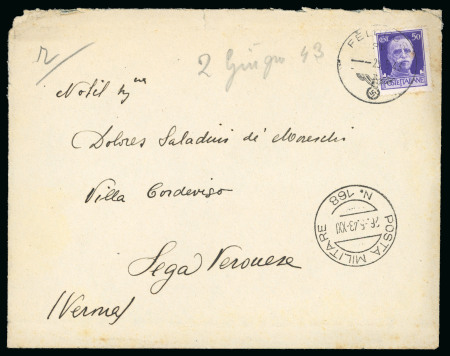 r/
2 Giugno 43
FEL
CENT 50
POSTE ITALIANE
Nobil
Dolores Saladini di Moreschi
Villa Cordevigo
Sega Veronese
(Verona)
POSTA MILITARE
26.5.43.XXI
N. 168